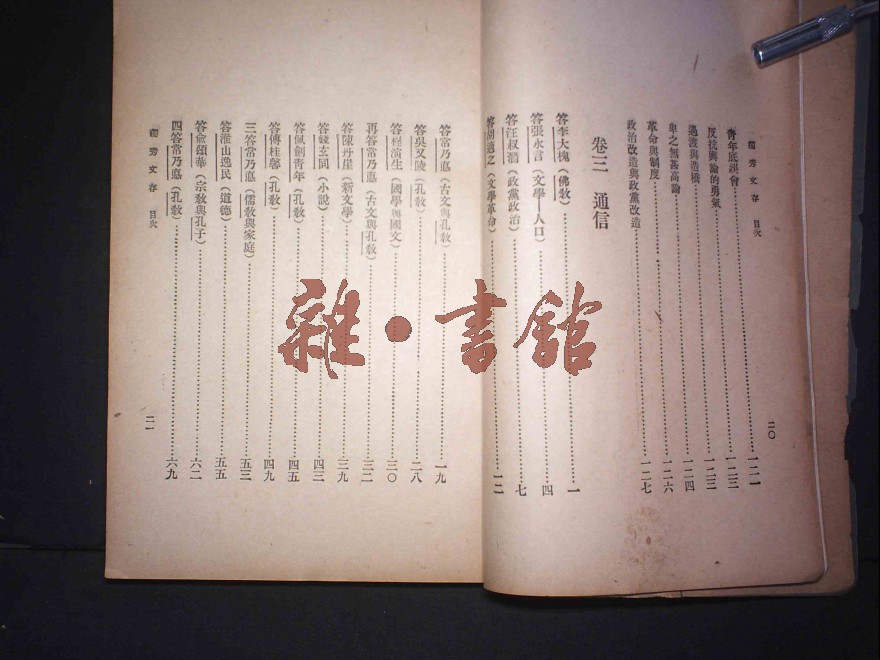 獨秀文存 目次
青年底誤會……一二二
反抗輿論的勇氣……一二三
過渡與造橋……一二四
卑之無甚高論……一二六
革命與制度……
政治改造與政黨改造……一二七
卷三 通信
答李大槐(佛教)……一
答張永言(文學—人口)……四
答汪叔潛(政黨政治)……七
答胡適之(文學革命)……一二
二〇
答常乃悳(古文與孔教)……一九
答吳又陵(孔教)……二八
答程演生(國學與國文)……三〇
再答常乃悳(古文與孔教)……三二
答陳丹崖(新文學)……三九
答錢玄同(小說)……四三
答佩劍青年(孔教)……四五
答傅桂馨(孔教)……四九
三答常乃悳(儒教與家庭)……五三
答淮山逸民(道德)……五五
答俞頌華(宗教與孔子)……六二
四答常乃悳(孔教)……六九
獨秀文存 目次
二一
雜·書館